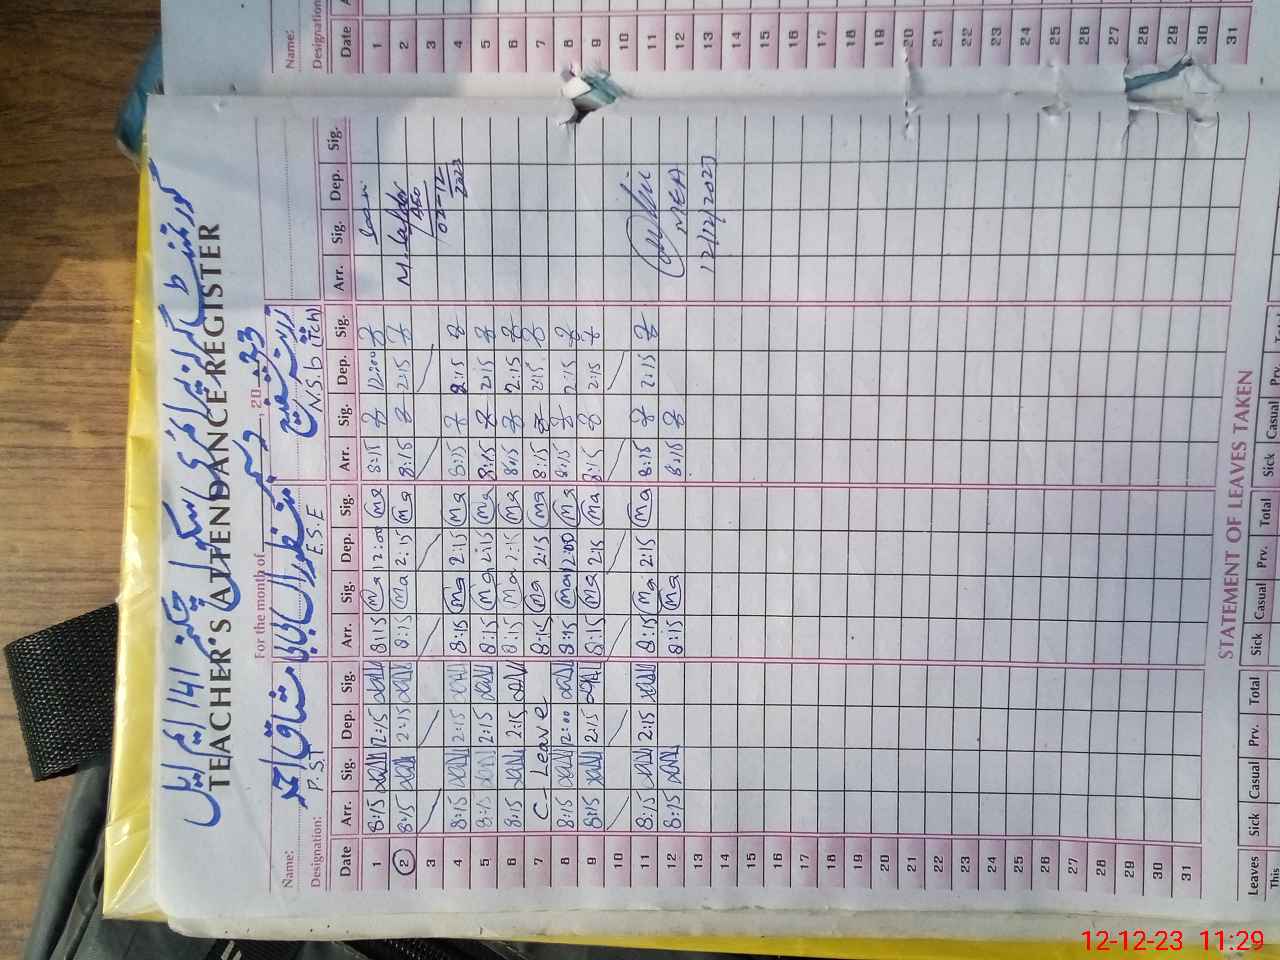 گورنمنٹ گرلز پرائمری سکول چکنمبر 141 ایم ایل
TEACHER'S ATTENDANCE REGISTER
For the month of دسمبر, 20
Name: مشتاق احمد منظور الہی
Designation: P.S.T E.S.E N.S.b (TCh)
Date Arr. Sig. Dep. Sig. Arr. Sig. Dep. Sig. Arr. Sig. Dep. Sig. Arr. Sig. Dep. Sig.
1 8:15 12:15 8:15 Ma 12:00 Ma 8:15 12:00
2 8:15 2:15 8:15 Ma 2:15 Ma 8:15 2:15
3
02-12-2023
4 8:15 2:15 8:15 Ma 2:15 Ma 8:15 2:15
5 8:15 2:15 8:15 Ma 2:15 Ma 8:15 2:15
6 8:15 2:15 8:15 Ma 2:15 Ma 8:15 2:15
7 C-Leave 8:15 Ma 2:15 Ma 8:15 2:15
8 8:15 12:00 8:15 Ma 12:00 Ma 8:15 2:15
9 8:15 2:15 8:15 Ma 2:15 Ma 8:15 2:15
10
11 8:15 2:15 8:15 Ma 2:15 Ma 8:15 2:15
12 8:15 8:15 Ma 8:15 MEA
13 12/12/2023
14
15
16
17
18
19
20
21
22
23
24
25
26
27
28
29
30
31
STATEMENT OF LEAVES TAKEN
Leaves Sick Casual Prv. Total Sick Casual Prv. Total Sick Casual Prv.
This
Name:
Designation:
Date
1
2
3
4
5
6
7
8
9
10
11
12
13
14
15
16
17
18
19
20
21
22
23
24
25
26
27
28
29
30
31
12-12-23 11:29